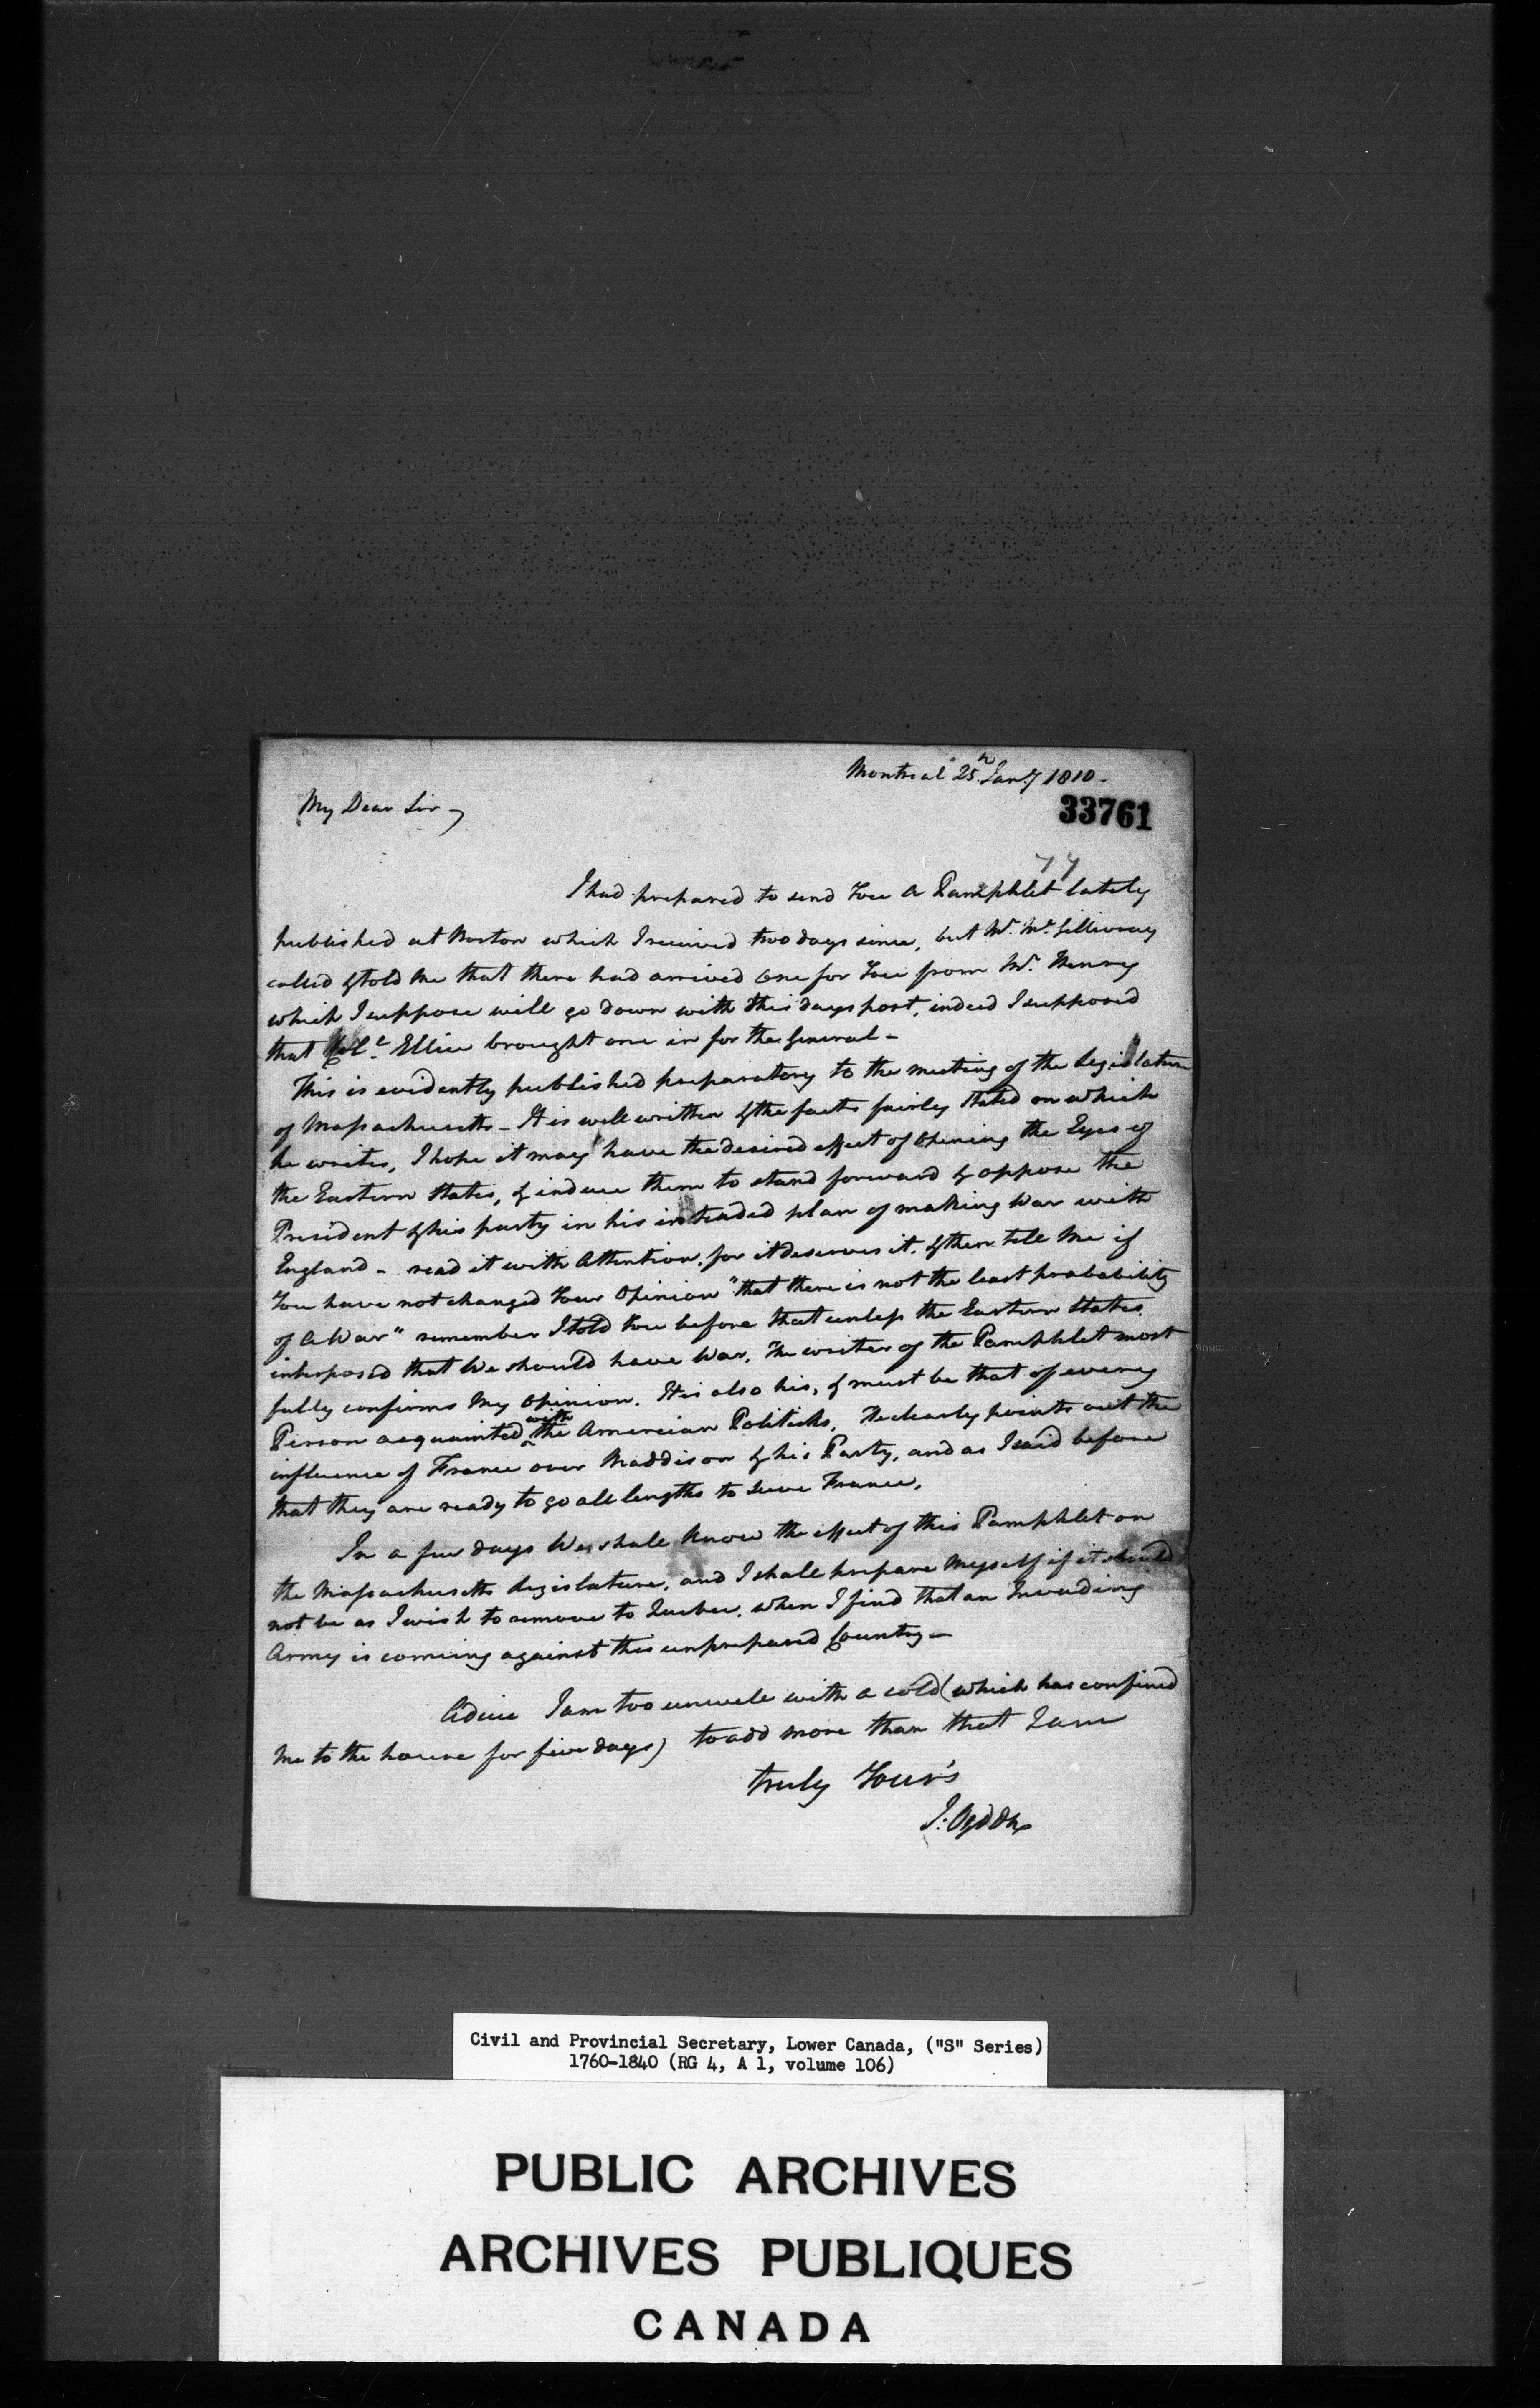 Montreal 25th Jany 1810.
My Dear Sir
33761
77
I had prepared to send You a Pamphlet lately
published at Boston which I received two days since, but Mr. McGillivray
called & told me that there had arrived one for You from Mr. Henry
which I suppose will go down with this days post, indeed I supposed
that Ellice brought one in for the General -
This is evidently published preparatory to the meeting of the Legislature
of Massachusetts - It is well written & the facts fairly stated on which
he writes, I hope it may have the desired effect of Opening the Eyes of
the Eastern States, & induce them to stand forward & oppose the
President & his party in his intended plan of making War with
England - read it with Attention, for it deserves it, & then tell Me if
You have not changed Your Opinion "that there is not the least probability
of a War" remember I told You before that unless the Eastern States
interposed that We should have War, The writer of the Pamphlet most
fully confirms My Opinion. It is also his, & must be that of every
Person acquainted with the Amercian Politicks, He clearly points out the
influence of France over Maddison & his Party, and as I said before
that they are ready to go all lengths to serve France.
In a few days We shall know the effect of this Pamphlet on
the Massachusetts Legislature, and I shall prepare Myself if it should
not be as I wish to remove to Quebec, when I find that an Invading
Army is coming against this unprepared Country -
Adieu I am too unwell with a cold (which has confined
me to the house for five days) to add more than that I am
truly Your's
J: Ogden
Civil and Provincial Secretary, Lower Canada, ("S" Series)
1760-1840 (RG 4, A 1, volume 106)
PUBLIC ARCHIVES
ARCHIVES PUBLIQUES
CANADA